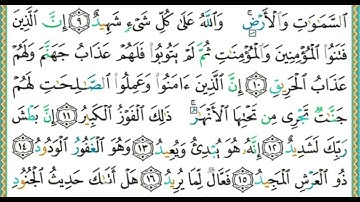 السَّمَٰوَٰتِ وَالْأَرْضِ ۚ وَاللَّهُ عَلَىٰ كُلِّ شَيْءٍ شَهِيدٌ ۝٩ إِنَّ الَّذِينَ
فَتَنُوا الْمُؤْمِنِينَ وَالْمُؤْمِنَٰتِ ثُمَّ لَمْ يَتُوبُوا فَلَهُمْ عَذَابُ جَهَنَّمَ وَلَهُمْ
عَذَابُ الْحَرِيقِ ۝١٠ إِنَّ الَّذِينَ ءَامَنُوا وَعَمِلُوا الصَّٰلِحَٰتِ لَهُمْ
جَنَّٰتٌ تَجْرِى مِن تَحْتِهَا الْأَنْهَٰرُ ۚ ذَٰلِكَ الْفَوْزُ الْكَبِيرُ ۝١١ إِنَّ بَطْشَ
رَبِّكَ لَشَدِيدٌ ۝١٢ إِنَّهُۥ هُوَ يُبْدِئُ وَيُعِيدُ ۝١٣ وَهُوَ الْغَفُورُ الْوَدُودُ ۝١٤
ذُو الْعَرْشِ الْمَجِيدُ ۝١٥ فَعَّالٌ لِّمَا يُرِيدُ ۝١٦ هَلْ أَتَىٰكَ حَدِيثُ الْجُنُودِ